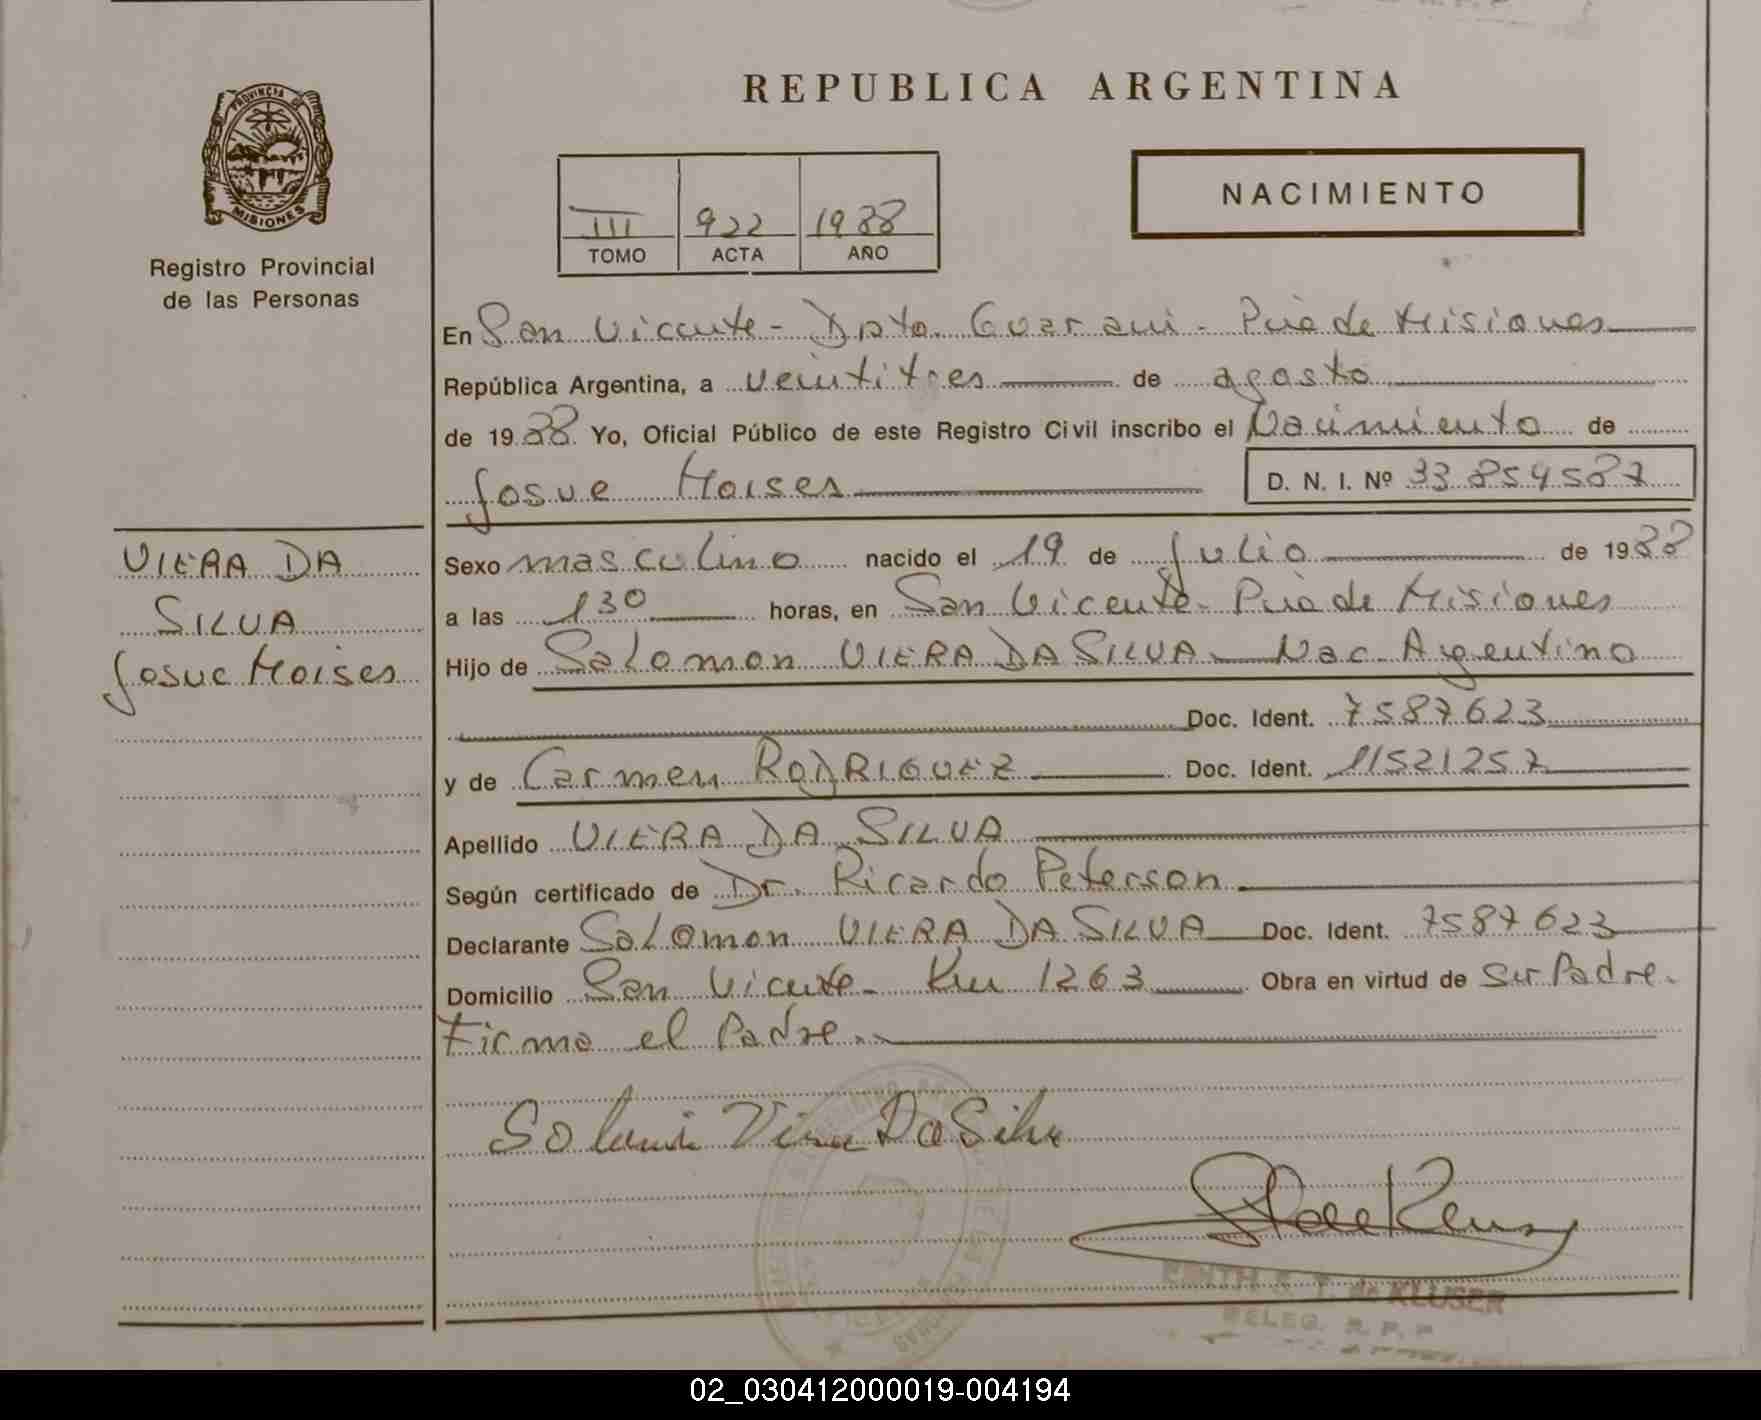 REPUBLICA ARGENTINA
PROVINCIA DE
MISIONES
Registro Provincial
de las Personas
III 922 1988
TOMO ACTA AÑO
NACIMIENTO
En San Vicente - Dpto. Guarani - Pcia de Misiones
República Argentina, a veintitres de agosto
de 1988. Yo, Oficial Público de este Registro Civil inscribo el Nacimiento de
Josue Moises D. N. I. Nº 33 854587
VIERA DA
SILVA
Josue Moises
Sexo masculino nacido el 19 de Julio de 1988
a las 130 horas, en San Vicente - Pcia de Misiones
Hijo de Salomon VIERA DA SILVA - Nac. Argentino
Doc. Ident. 7587623
y de Carmen RODRIGUEZ Doc. Ident. 11521257
Apellido VIERA DA SILVA
Según certificado de Dr. Ricardo Peterson
Declarante Salomon VIERA DA SILVA Doc. Ident. 7587623
Domicilio San Vicente - Km 1263 Obra en virtud de Ser Padre.
Firma el Padre..
Viera Da Silva
EDITH S. T. de KLUSER
DELEG. R. P. P
02_030412000019-004194